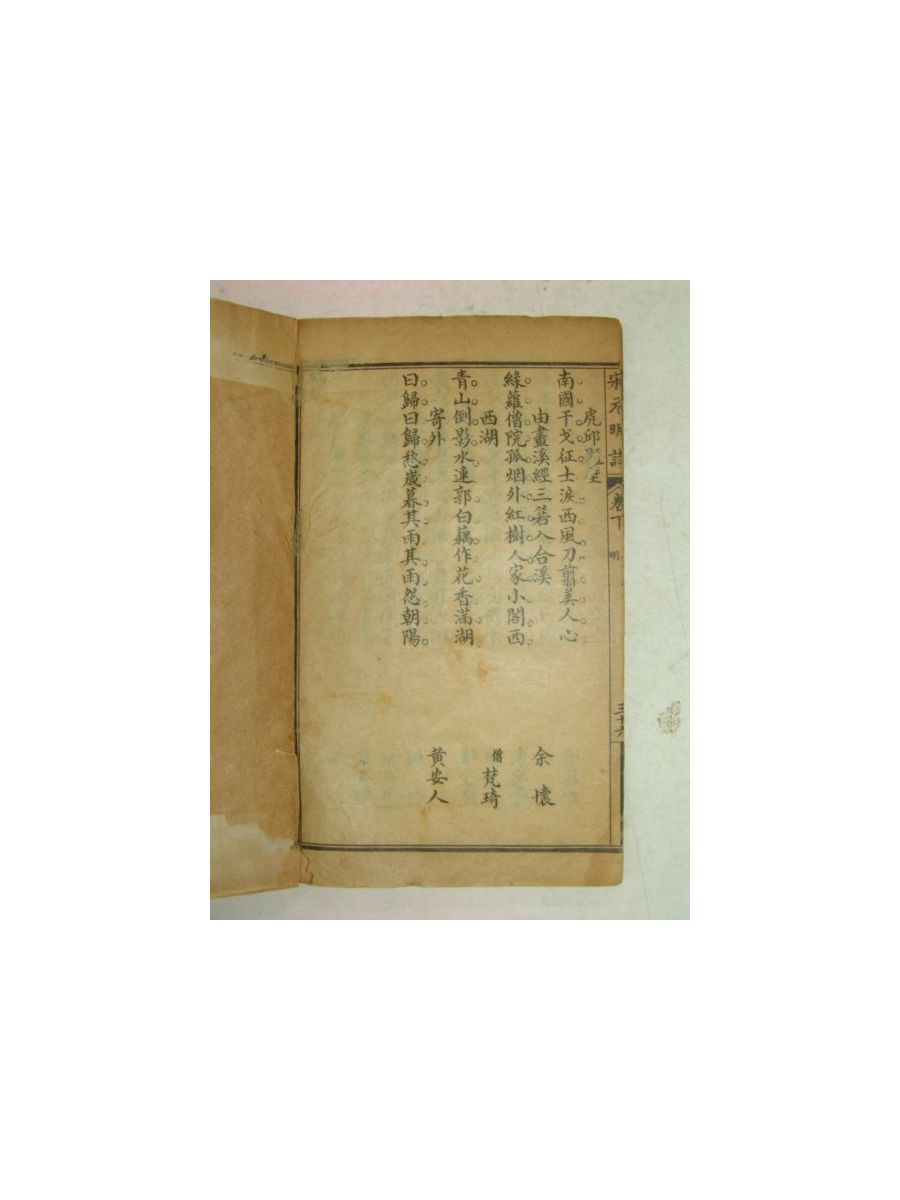 宋元明詩 卷下 明 三十六
虎邱題壁
南國干戈征士淚西風刀翦美人心
由畫溪經三箬入合溪 余懷
綠蘿僧院孤烟外紅樹人家小閣西
西湖 僧梵琦
青山倒影水連郭白藕作花香滿湖
寄外 黃安人
曰歸曰歸愁歲暮其雨其雨怨朝陽